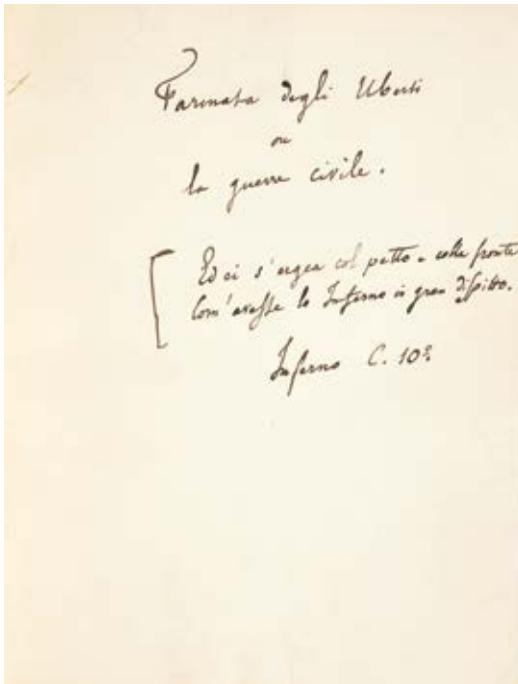 Farinata degli Uberti
ou
la guerre civile.
Ed ei s'ergea col petto e colla fronte
Com'avesse lo Inferno in gran dispitto.
Inferno C. 10º